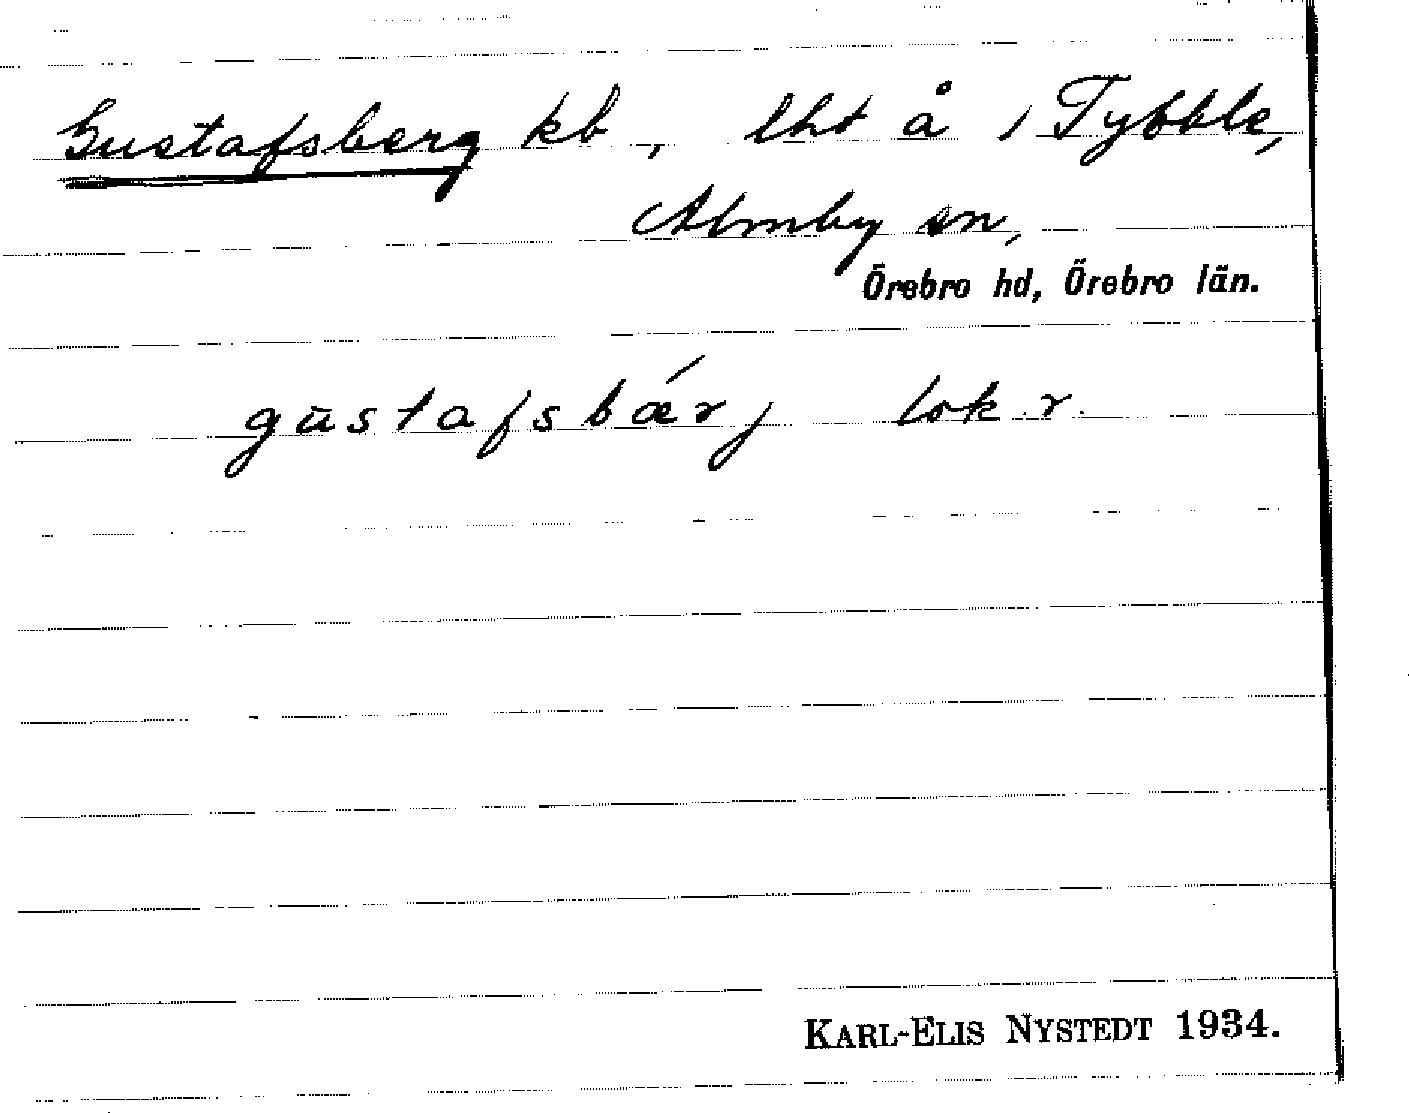 Gustafsberg kb, lht å 1 Tybble,
Almby sn,
Örebro hd, Örebro län.
gūstafsbǽrj lok r.
KARL-ELIS NYSTEDT 1934.